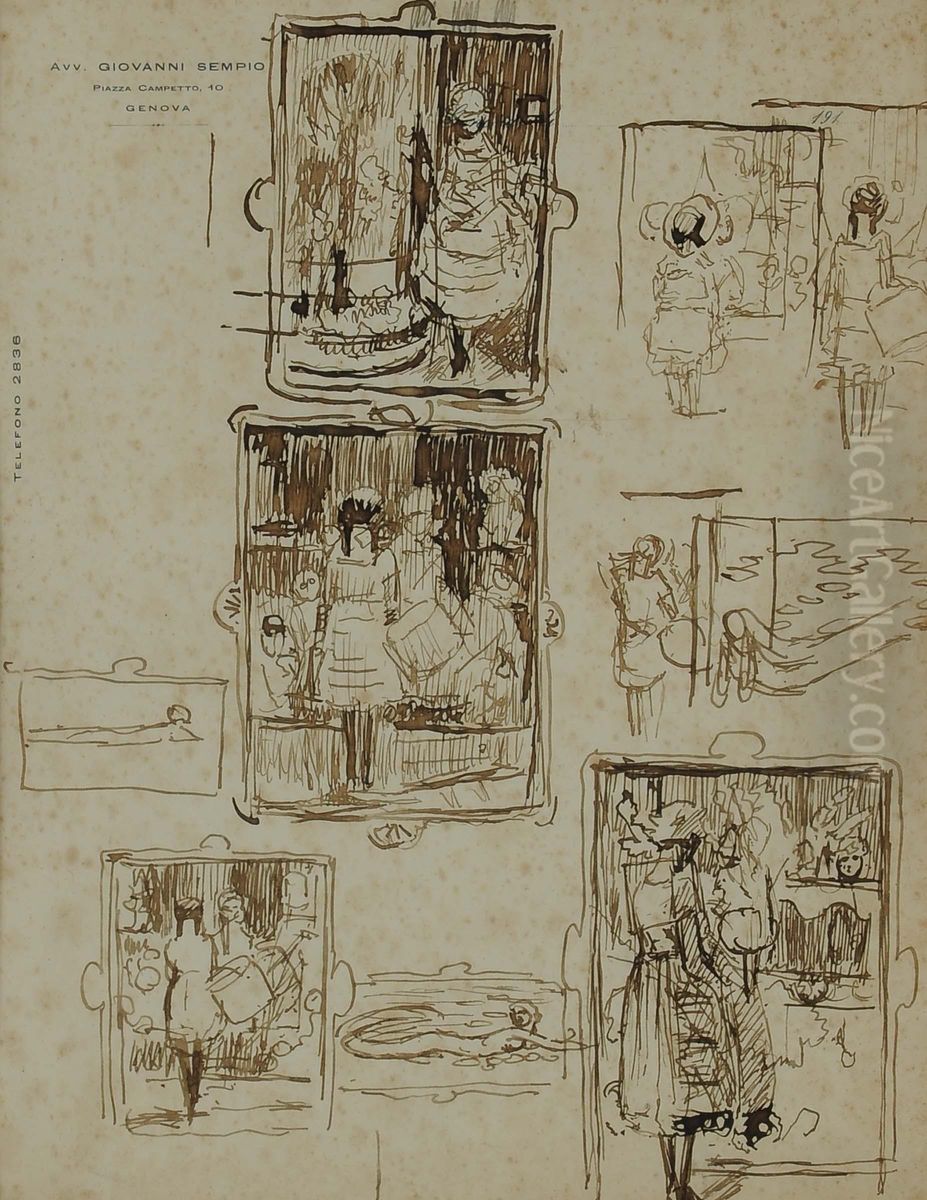 Avv. GIOVANNI SEMPIO
PIAZZA CAMPETTO, 10
GENOVA
191
TELEFONO 2836
NiceArtGallery.co